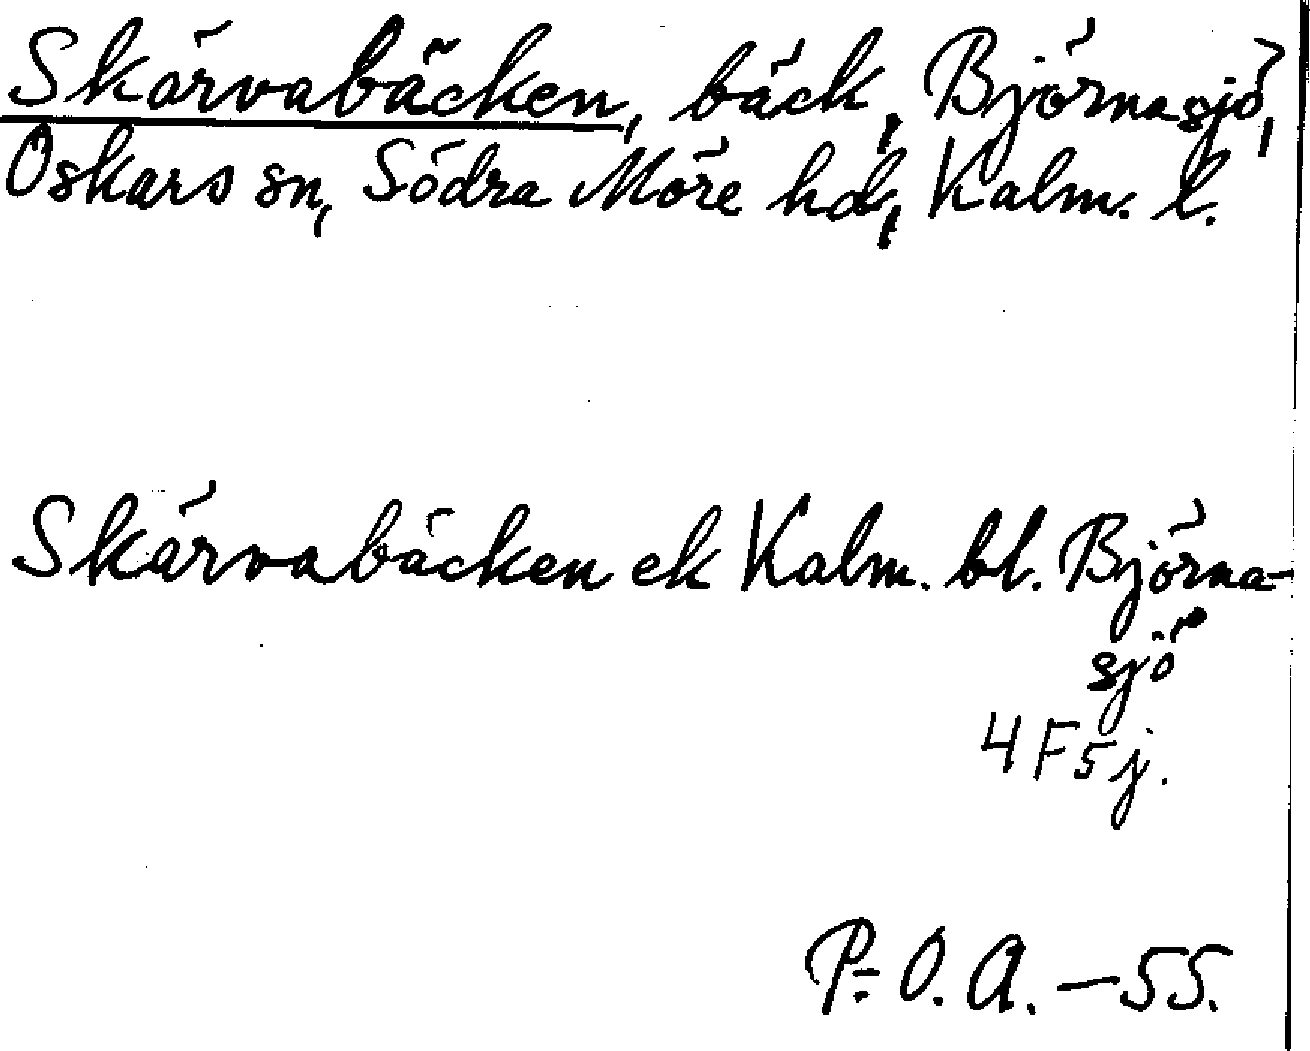 Skärvabäcken, bäck, Björnasjö,
Oskars sn, Södra Möre hd, Kalm. l.
Skärvabäcken ek Kalm. bl. Björna-
sjö
4 F 5 j.
P.-O. A. — 55.